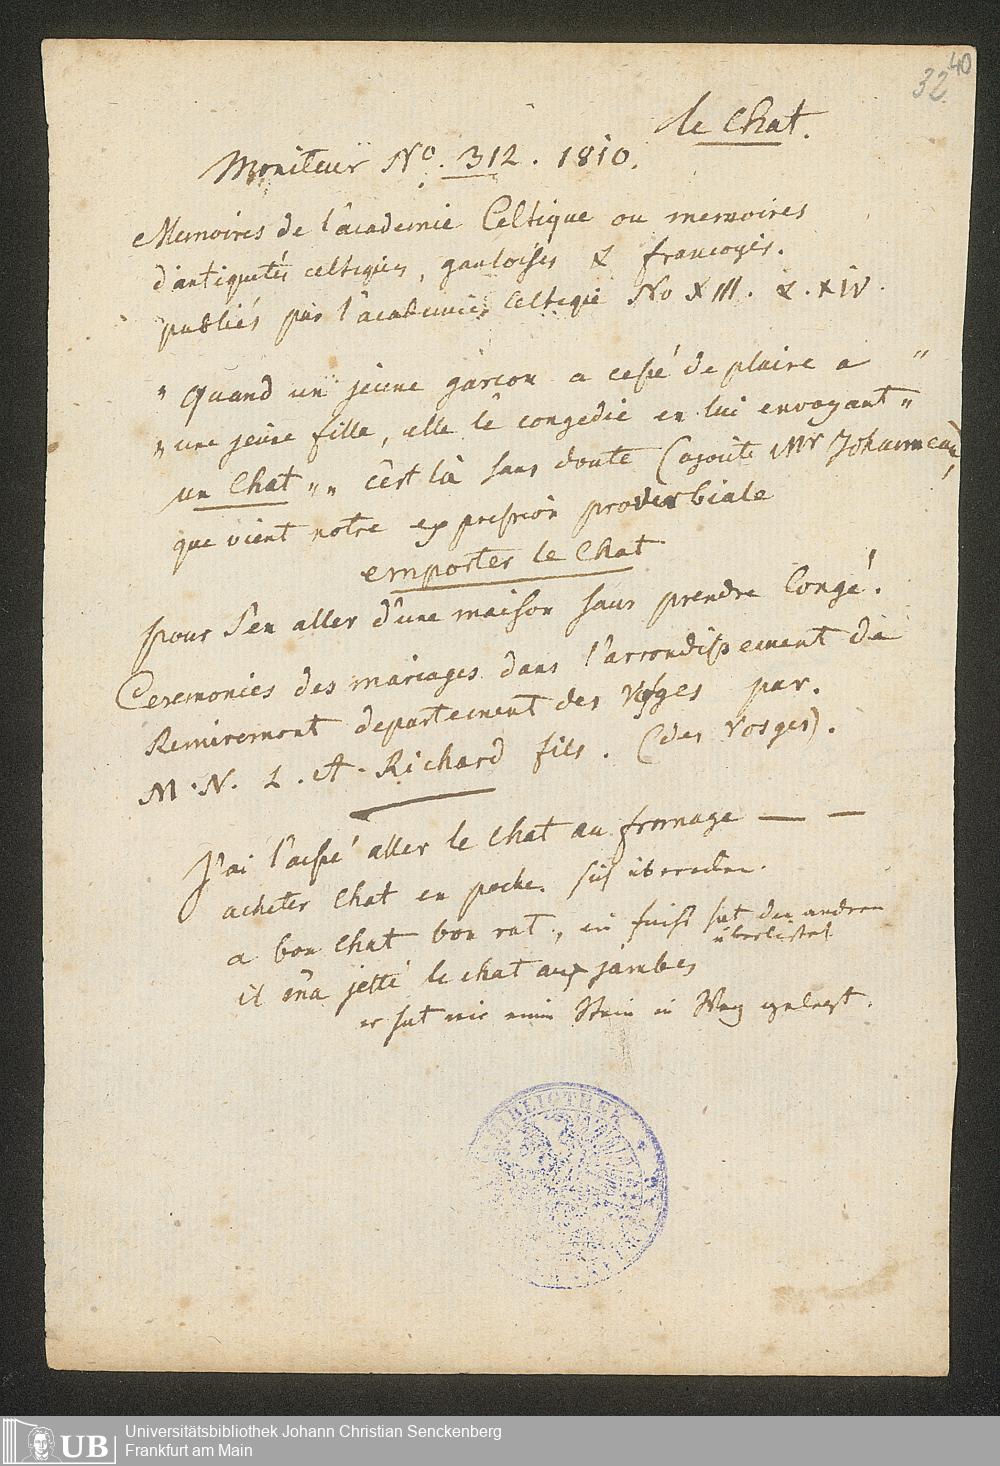 40
32.
le Chat.
Moniteur No. 312. 1810.
Memoires de l'academie Celtique ou memoires
d'antiquetés celtiques, gauloises & françoyses.
publiés par l'academie Celtique No XIII. & XIV.
" Quand un jeune garçon a cessé de plaire a "
" une jeune fille, elle le congedie en lui envoyant "
un Chat " " c'est là sans doute (ajoute Mr Johanneau,
que vient notre expression proverbiale
emporter le Chat
pour s'en aller d'une maison sans prendre Congé.
Ceremonies des mariages dans l'arrondissement de
Remiremont departement des Vosges par.
M. N. L. A. Richard fils. (des Vosges).
J'ai laissé aller le Chat au fromage — —
acheter Chat en poche.
a bon Chat bon rat, ein hat den andren
überlistet
il m'a jetté le chat aux jambes
er hat mir einen Stein in Weg gelegt.
BIBLIOTHEK
UB
Universitätsbibliothek Johann Christian Senckenberg
Frankfurt am Main